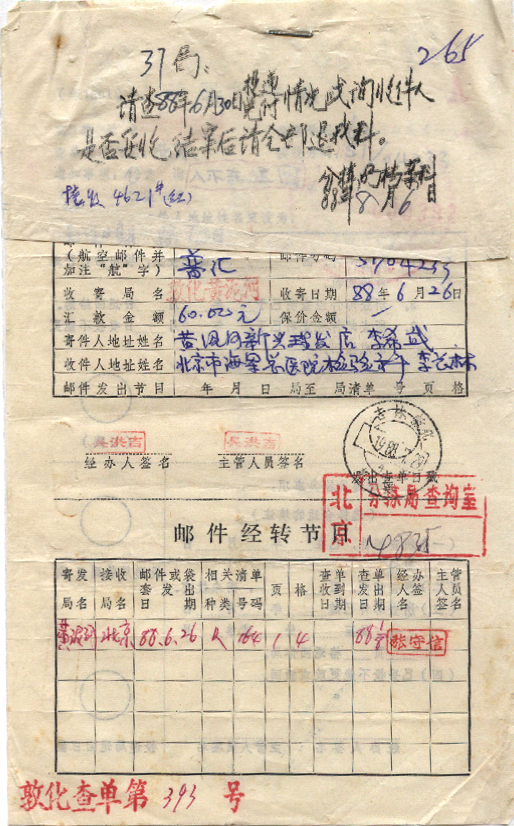 265
37局:
请查88年6月30日投递兑付情况,或询收件人
是否妥收,结果后请全部退我科。
88年8月6日
4621#(红)
(航空邮件并
加注“航”字) 普汇
收寄局名 敦化黄泥河 收寄日期 88年6月26日
汇款金额 60.00元 保价金额 一
寄件人地址姓名 黄泥河新兴 店 李希武
收件人地址姓名 北京市海军总医院检验 李
邮件发出节目 年 月 日 局至 局清单 号 页 格
吴洪吉 吴洪吉
经办人签名 主管人员签名
吉林敦化
1988.7.20
北京 分拣局查询室
邮件经转节目
寄发局名 接收局名 邮件或袋套发出日期 相关清单种类 号码 页 格 查单收到日期 查单发出日期 经办人签名 主管人员签名
黄泥河 北京 88.6.26 R 164 1 4 88 张守信
敦化查单第 393 号